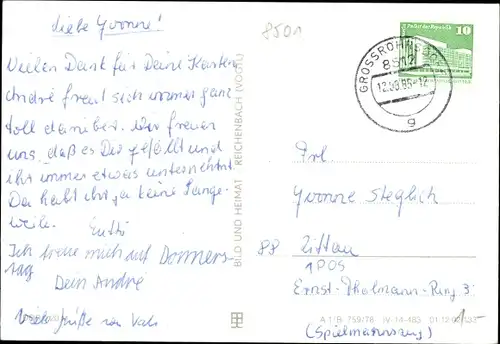 liebe Yvonne!
8501
Vielen Dank für Deine Karten.
André freut sich immer ganz
toll darüber. Wir freuen
uns, daß es Dir gefällt und
ihr immer etwas unternehmt.
Da habt ihr ja keine Lange-
weile.
Ich freue mich auf Donners-
tag
Dein André
viele Grüße von
BILD UND HEIMAT REICHENBACH (VOGTL)
GROSSRÖHRSDORF
8512
12.08.85-12
g
Palast der Republik
10
DDR
Frl.
Yvonne Steglich
88 Zittau
1POS
Ernst-Thälmann-Ring 3
(Spielmannszug)
1.-
A 1/B 759/78 IV-14-483